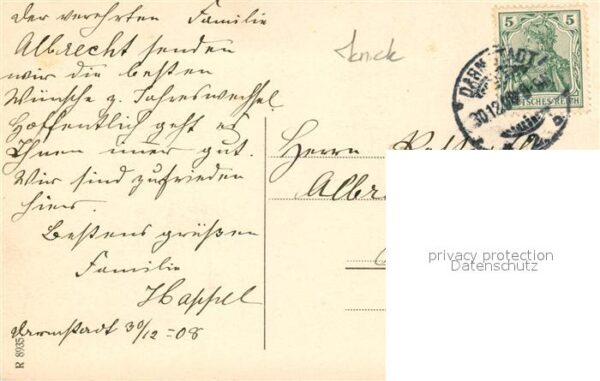 der verehrten Familie
Albrecht senden
wir die besten
Wünsche z. Jahreswechsel.
Hoffentlich geht es
Ihnen immer gut.
Wir sind zufrieden
hier.
Bestens grüßen
Familie
Happel
Darmstadt 30/12 =08
R 8935
5 5
DEUTSCHES REICH
DARMSTADT
30.12.08
Herrn
privacy protection
Datenschutz